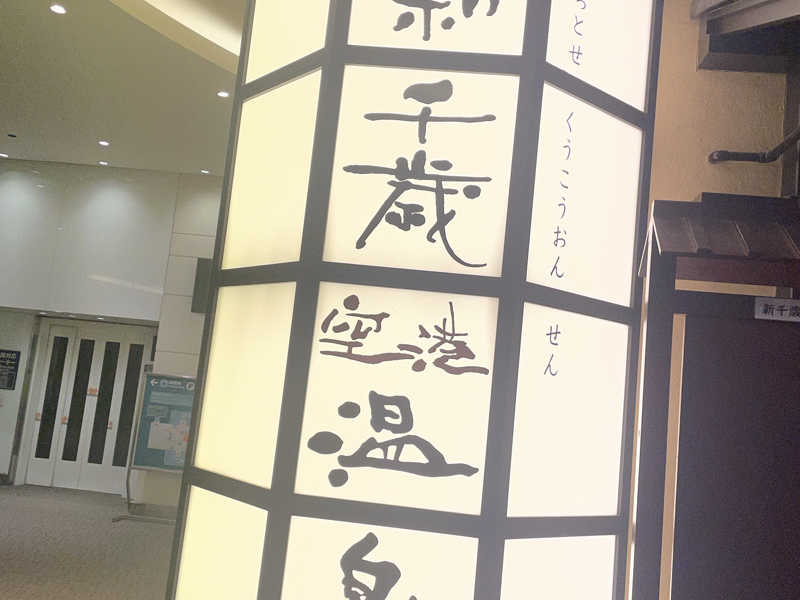 新
千歳
空港
温
泉
とせ
くうこうおん
せん
新千歳